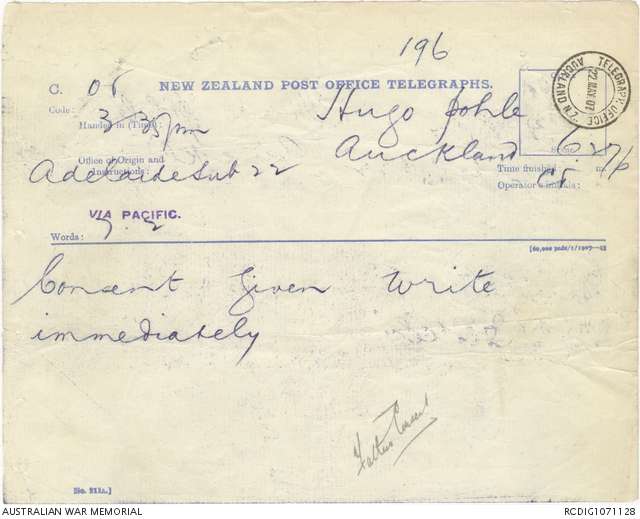 196
C. Or
NEW ZEALAND POST OFFICE TELEGRAPHS.
TELEGRAPH OFFICE
22 MAY 07
AUCKLAND N.Z.
Code:
Handed in (Time)
3/35pm
Hugo
Auckland
Office of Origin and
Instructions:
Adelaide Sub 22
Time finished: m.
6.27p
Operator's initials:
VIA PACIFIC.
Words:
[60,000 pads/1/1907—
Consent Given Write
immediately
Fathers Consent
[No. 211A.]
AUSTRALIAN WAR MEMORIAL
RCDIG1071128